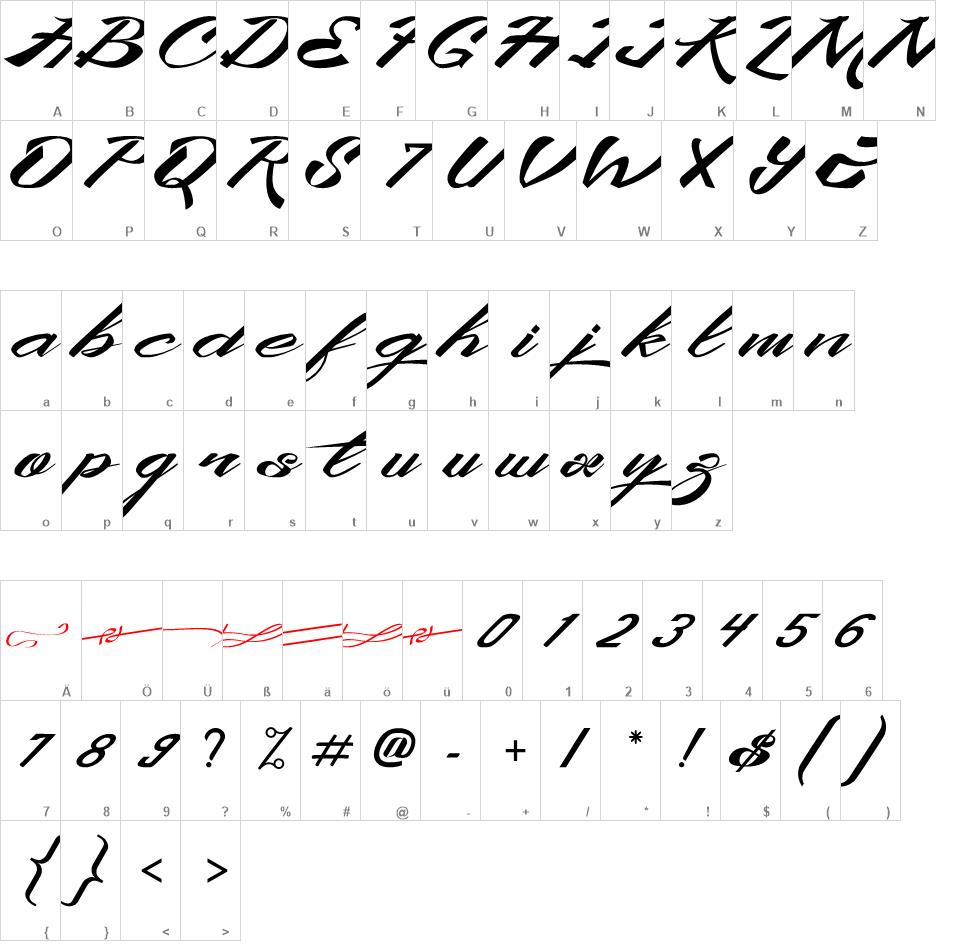 A B C D E F G H I J K L M N
A B C D E F G H I J K L M N
O P Q R S T U V W X Y Z
O P Q R S T U V W X Y Z
a b c d e f g h i j k l m n
a b c d e f g h i j k l m n
o p q r s t u v w x y z
o p q r s t u v w x y z
0 1 2 3 4 5 6
Ä Ö Ü ß ä ö ü 0 1 2 3 4 5 6
7 8 9 ? % # @ - + / * ! $ ( )
7 8 9 ? % # @ - + / * ! $ ( )
{ } < >
{ } < >